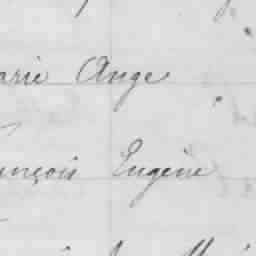 arie Ange
ançois Eugène